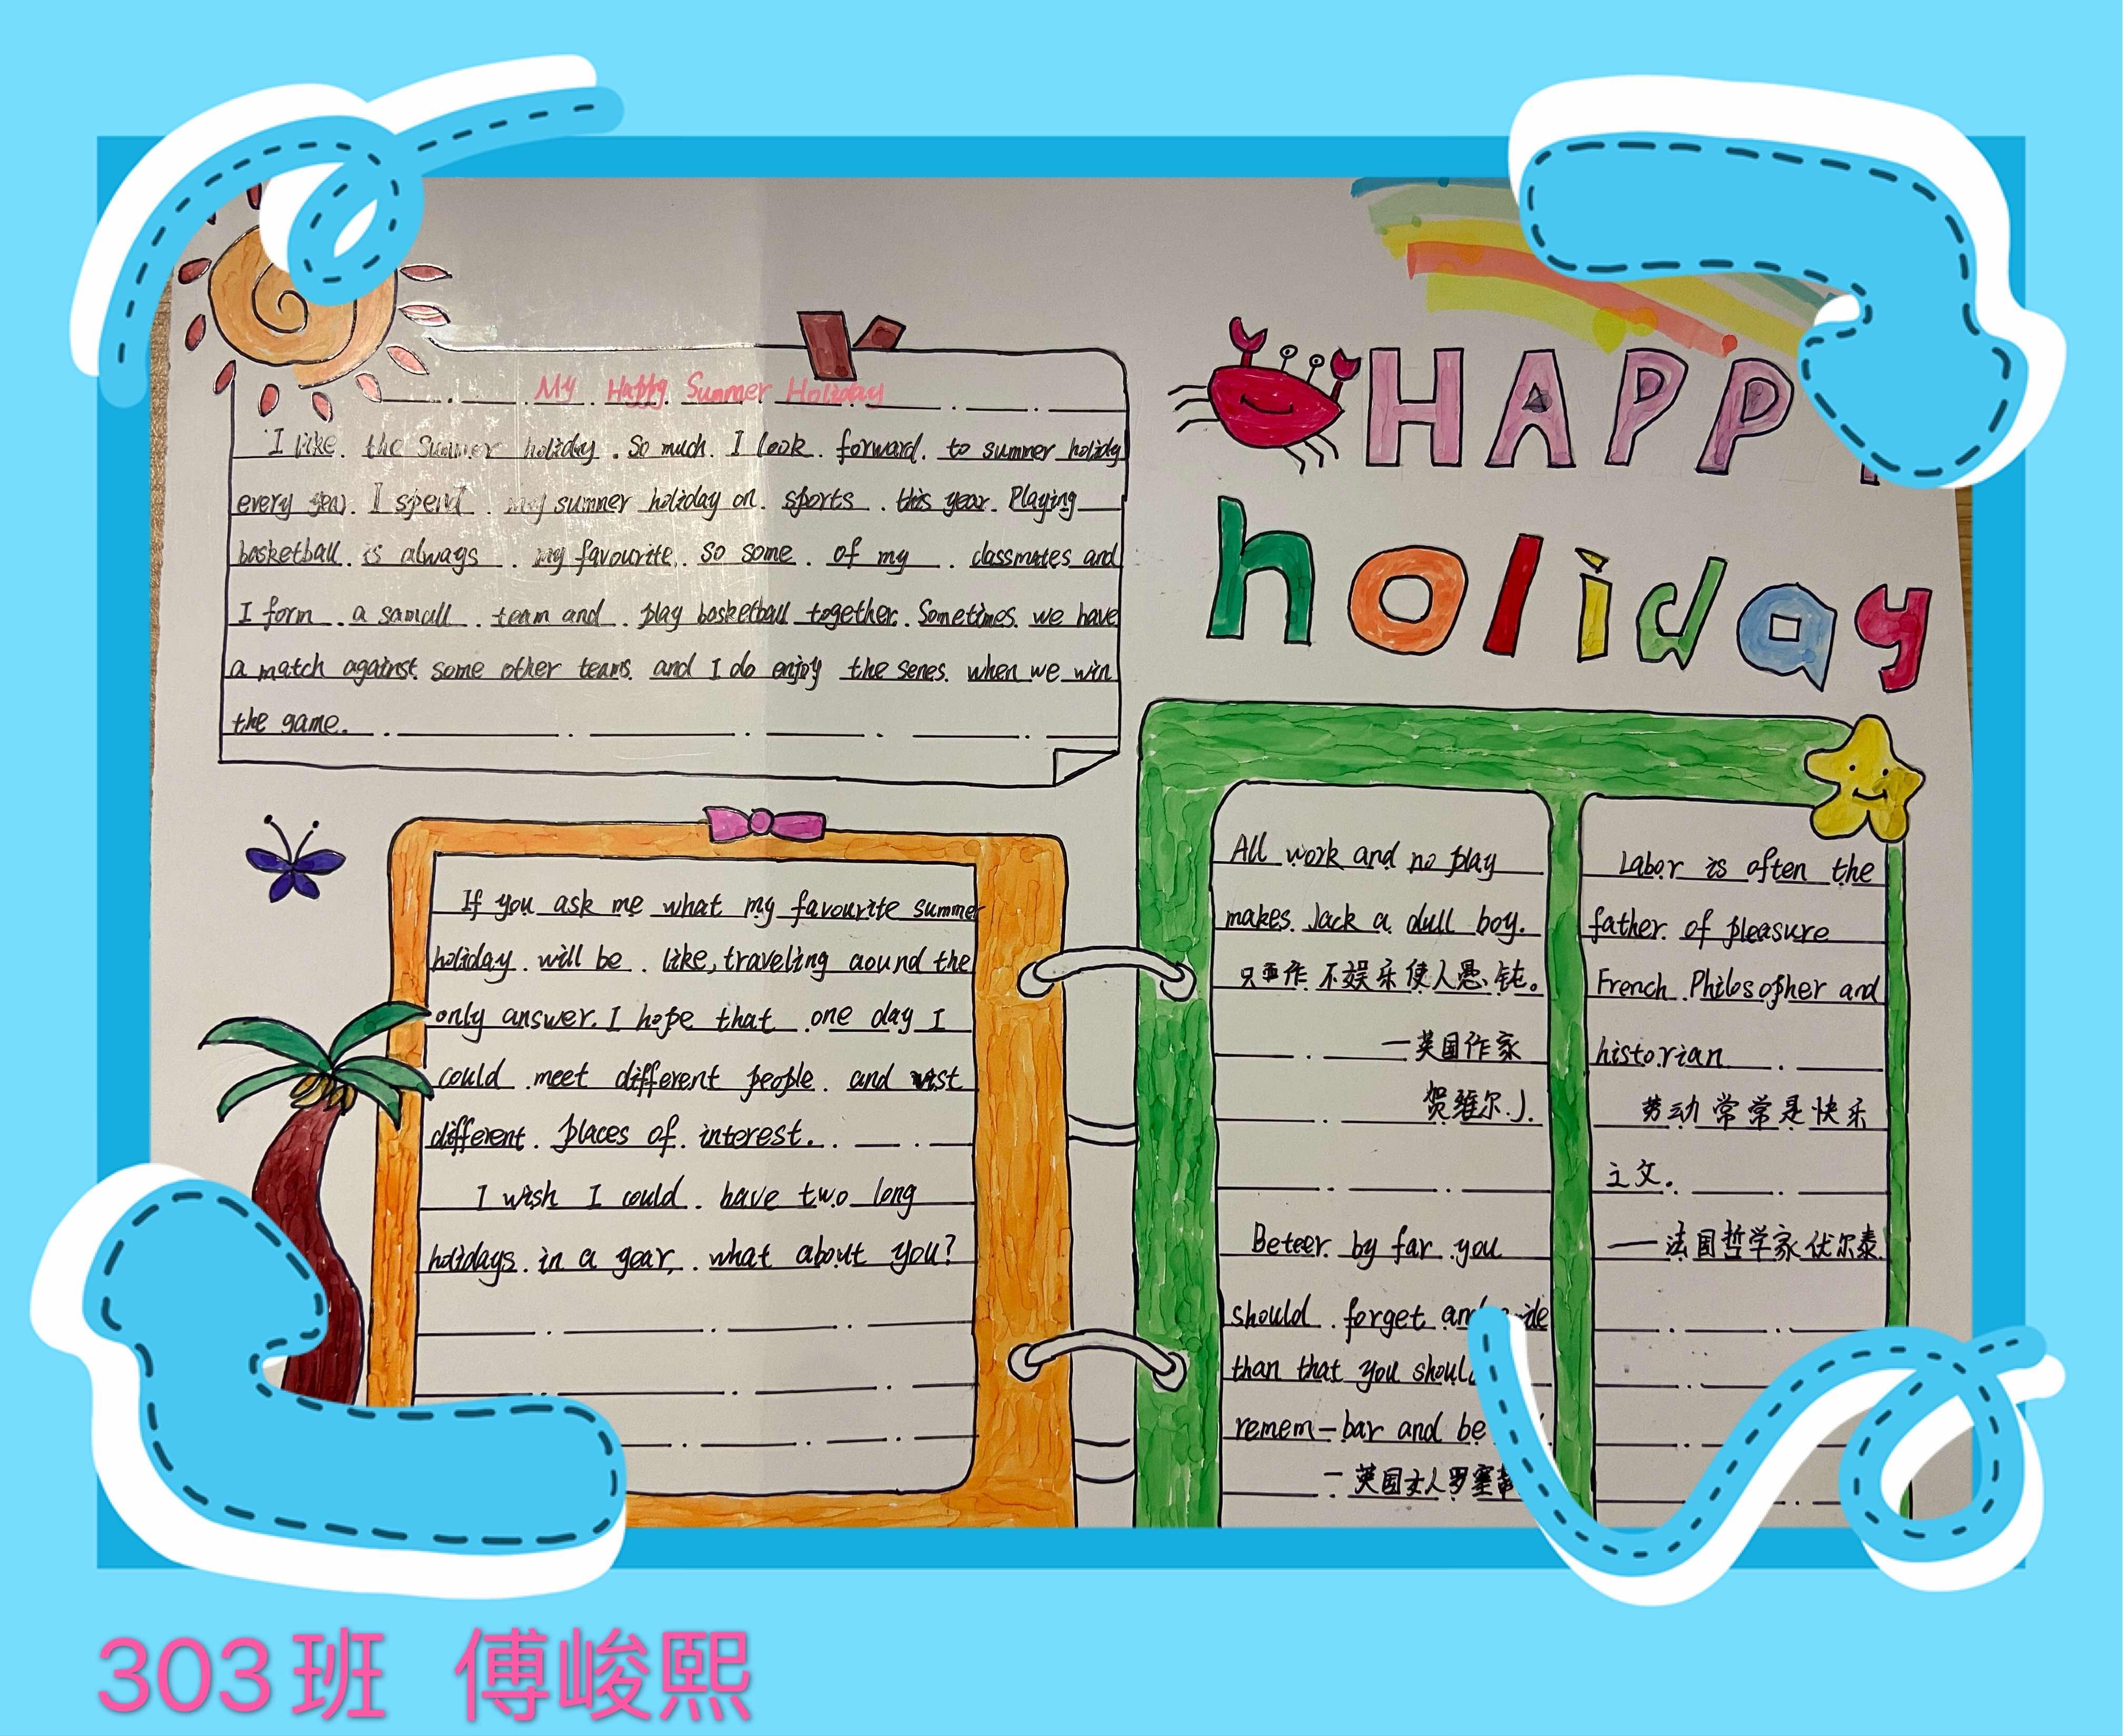 My Happy Summer Holiday
I like the summer holiday . So much. I look forward to summer holidy
every year. I spend my summer holiday on sports this year. Playing
basketball is always my favourite. so some of my classmates and
I form a samall team and play basketball together. Sometimes we have
a match against some other teams and I do enjoy the senes when we win
the game.
HAPP
holiday
If you ask me what my favourite summer
holiday will be like, traveling aound the
only answer. I hope that one day I
could meet different people and
different places of interest.
I wish I could have two long
holidays in a year, what about you?
All work and no play
makes Jack a dull boy.
只工作不娱乐使人愚钝。
一英国作家
贺维尔.J.
Beteer by far you
should forget and
than that you should
remem-bar and be
一英国女人罗塞蒂
Labor is often the
father of pleasure
French Philosopher and
historian
劳动常常是快乐
之父。
——法国哲学家伏尔泰
303班 傅峻熙